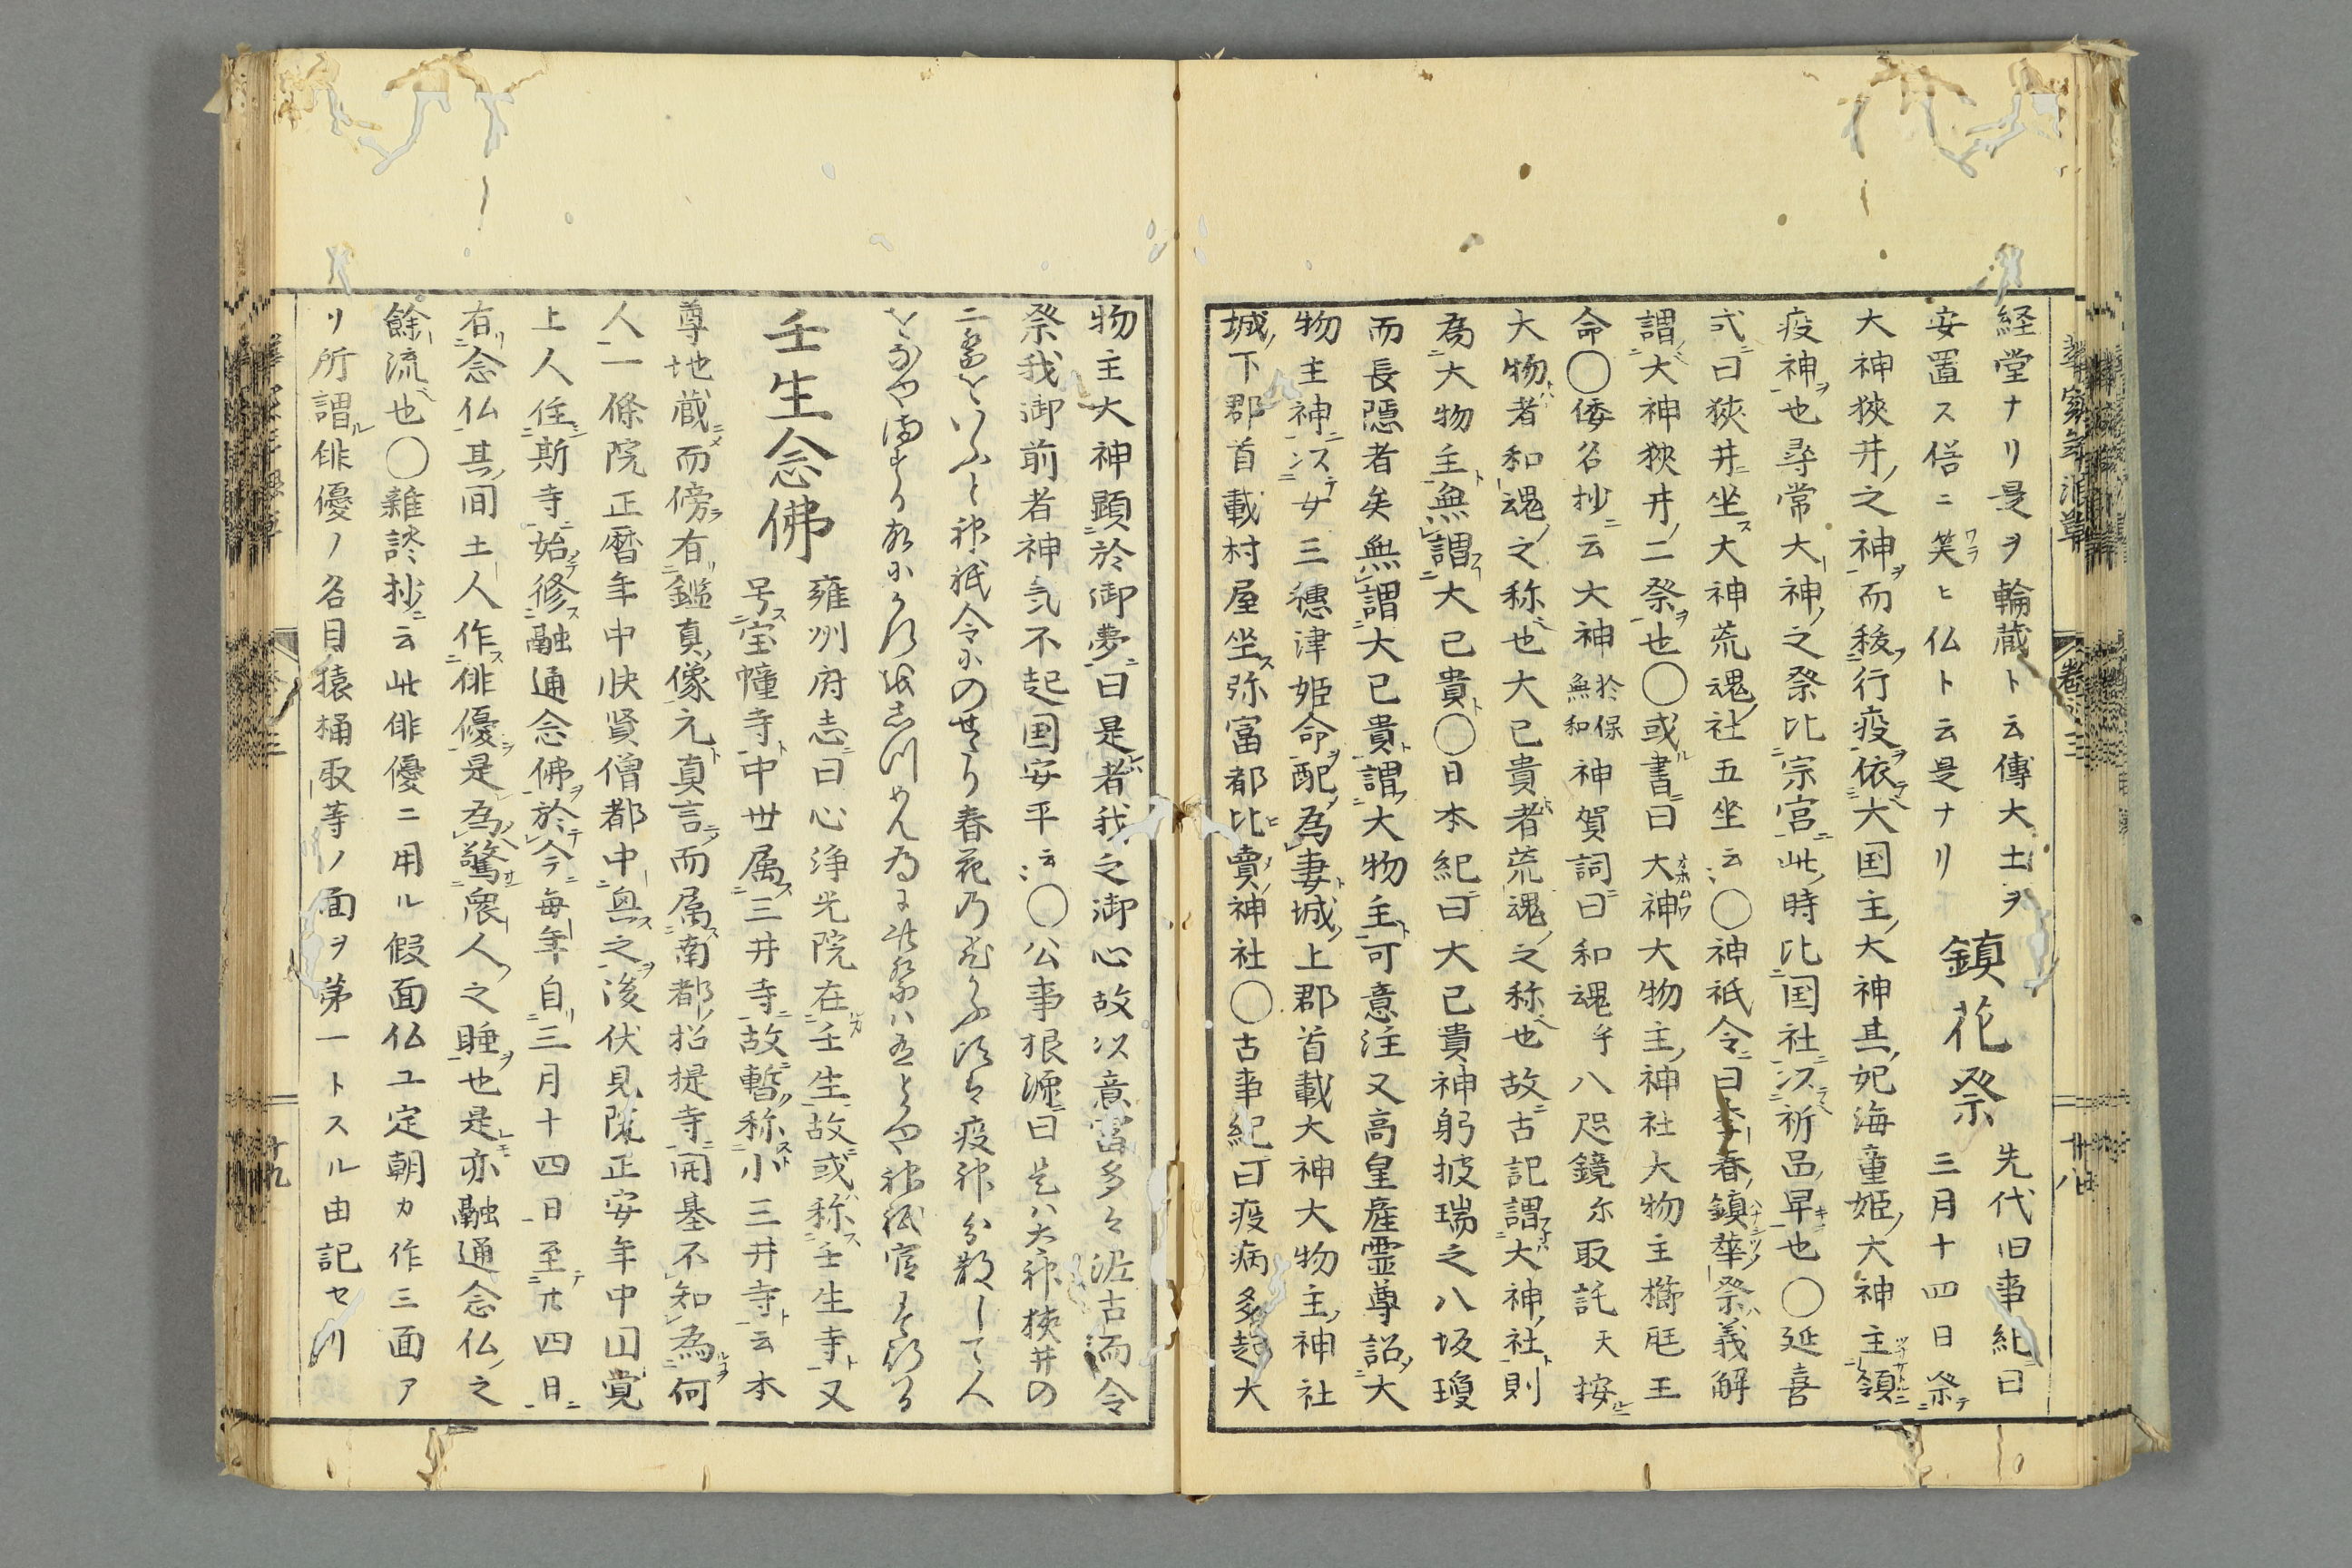 経堂ナリ是ヲ輪蔵ト云傳大士ヲ
安置ス俗ニ笑ヒ仏ト云是ナリ
鎮花祭
先代旧事紀曰
三月十四日祭
大神狹井之神而穣行疫依大国主大神其妃海童姫大神主領
疫神也尋常大神之祭比宗宮此時比国社以祈品早也〇延喜
式曰狹井坐大神荒魂社五坐云〻〇神祇令曰季春鎮華祭義解
謂大神狹井二祭也〇或書曰大神大物主神社大物主櫛𤭖玉
命〇倭名抄云大神於保無和神賀詞曰和魂乎八咫鏡尓取託天按
大物者和魂之称也大已貴者荒魂之称也故古記謂大神社則
為大物主無謂大已貴〇日本紀曰大已貴神躬披瑞之八坂瓊
而長隠者矣無謂大已貴謂大物主可意注又高皇産霊尊詔大
物主神女三穗津姫命配為妻城上郡首載大神大物主神社
城下郡首載村屋坐弥富都比賣神社〇古事紀曰疫病多起大
物主大神顕於御夢曰是者我之御心故以意富多〻泥古而令
祭我御前者神気不起国安平云〻〇公事根源曰是ハ大神狹井の
二祭をいふと神祇令にのせたり春花乃
疫神分散して人
神祇官
壬生念佛
雍州府志曰心浄光院在壬生故或称壬生寺又
号宝幢寺中世属三井寺故暫称小三井寺云本
尊地蔵而傍有鑑真像元真言而属南都招提寺開基不知為何
人一條院正暦年中快賢僧都中興之後伏見院正安年中円覚
上人住斯寺始修融通念佛於今毎年自三月十四日至廿四日
有念仏其間土人作俳優是為驚衆人之睡也是亦融通念仏之
餘流也〇雑談抄云此俳優ニ用ル假面仏工定朝カ作三面ア
リ所謂俳優ノ名目猿桶取等ノ面ヲ第一トスル由記セリ